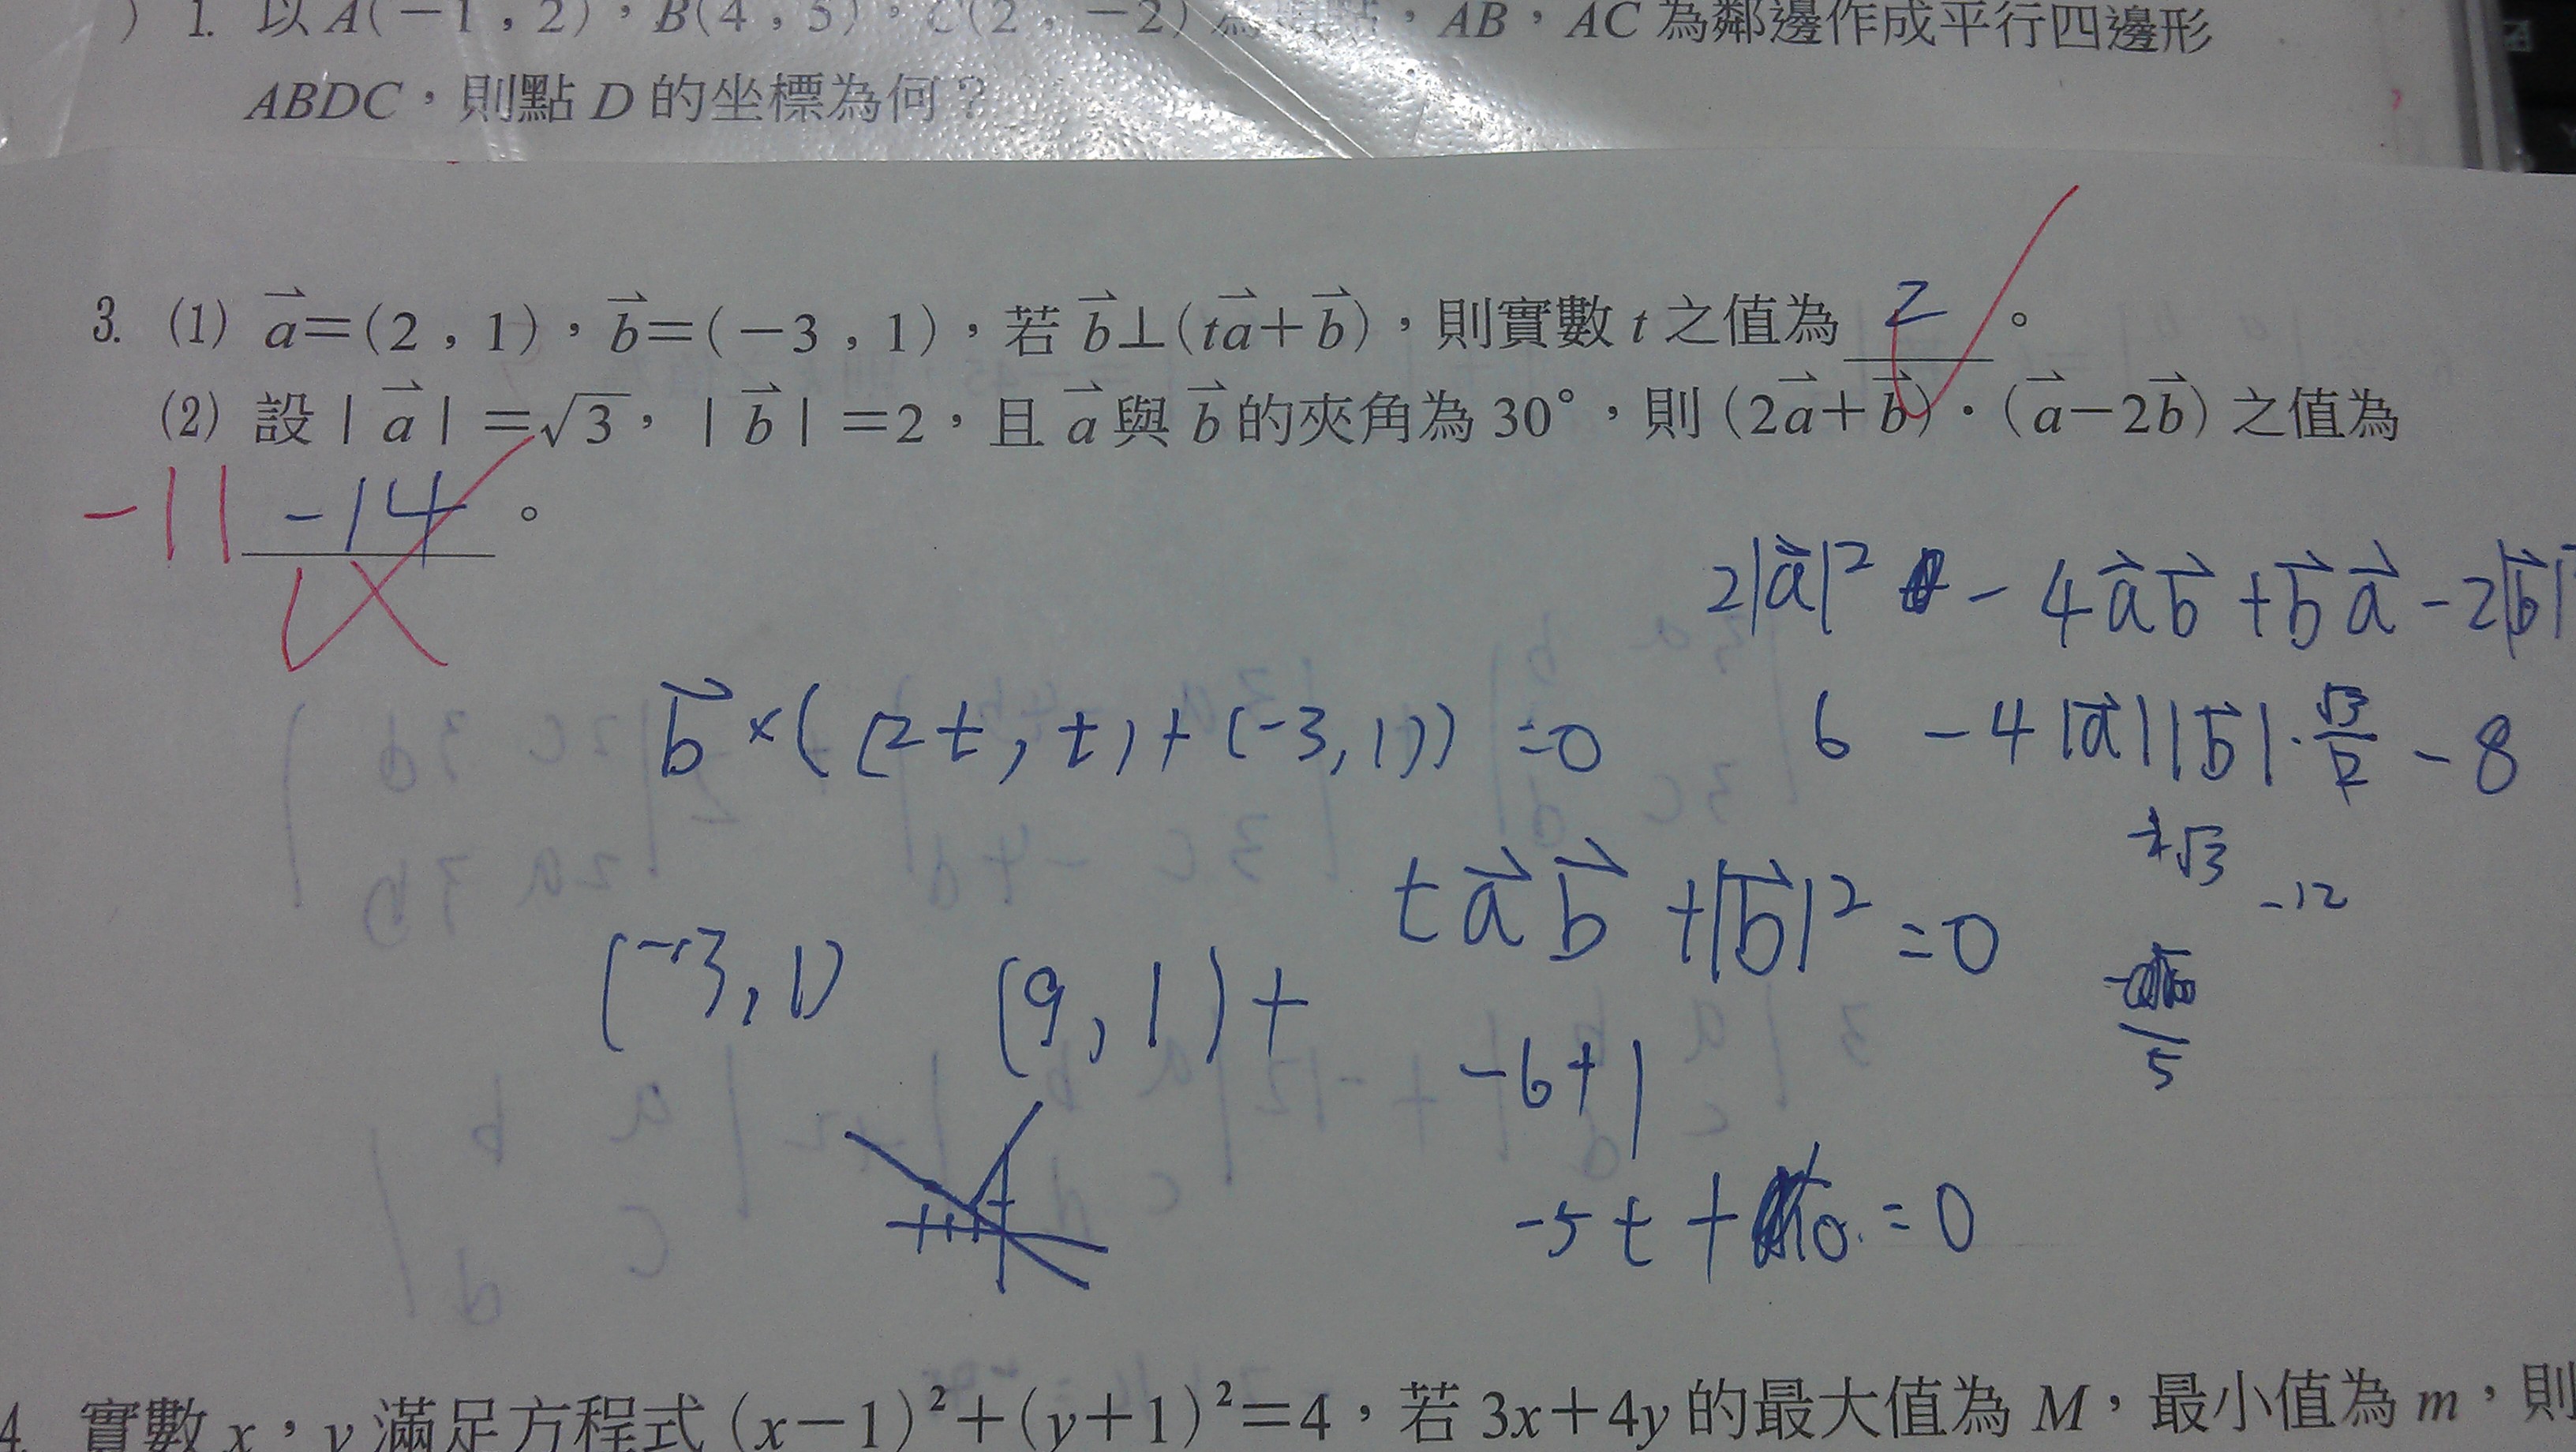 ) 1. 以 A(－1，2)，B(4，5)，C(2，－2) 為頂點，AB，AC 為鄰邊作成平行四邊形
ABDC，則點 D 的坐標為何？
3. (1) a=(2，1)，b=(－3，1)，若 b⊥(ta+b)，則實數 t 之值為 2 。
(2) 設 | a | =√3，| b | =2，且 a 與 b 的夾角為 30°，則 (2a+b)·(a－2b) 之值為
-11 -14 。
2|a|² - 4ab + ba - 2|b|
b×((2t, t)+(-3,1)) =0
6 -4|a||b|·√3/2 - 8
√3
-12
tab +|b|² =0
(-3,1) (9,1)+
5
-6+1
-5t + 10 =0
4. 實數 x，y 滿足方程式 (x－1)²+(y+1)²=4，若 3x+4y 的最大值為 M，最小值為 m，則